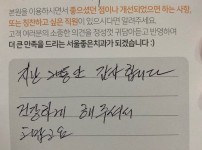 본원을 이용하시면서 좋으셨던 점이나 개선되었으면 하는 사항,
또는 칭찬하고 싶은 직원이 있으시다면 알려주세요.
고객 여러분의 소중한 의견을 정성껏 귀담아듣고 반영하여
더 큰 만족을 드리는 서울좋은치과가 되겠습니다 :)
지난 감사 합니다
친절하게 해 주셔서